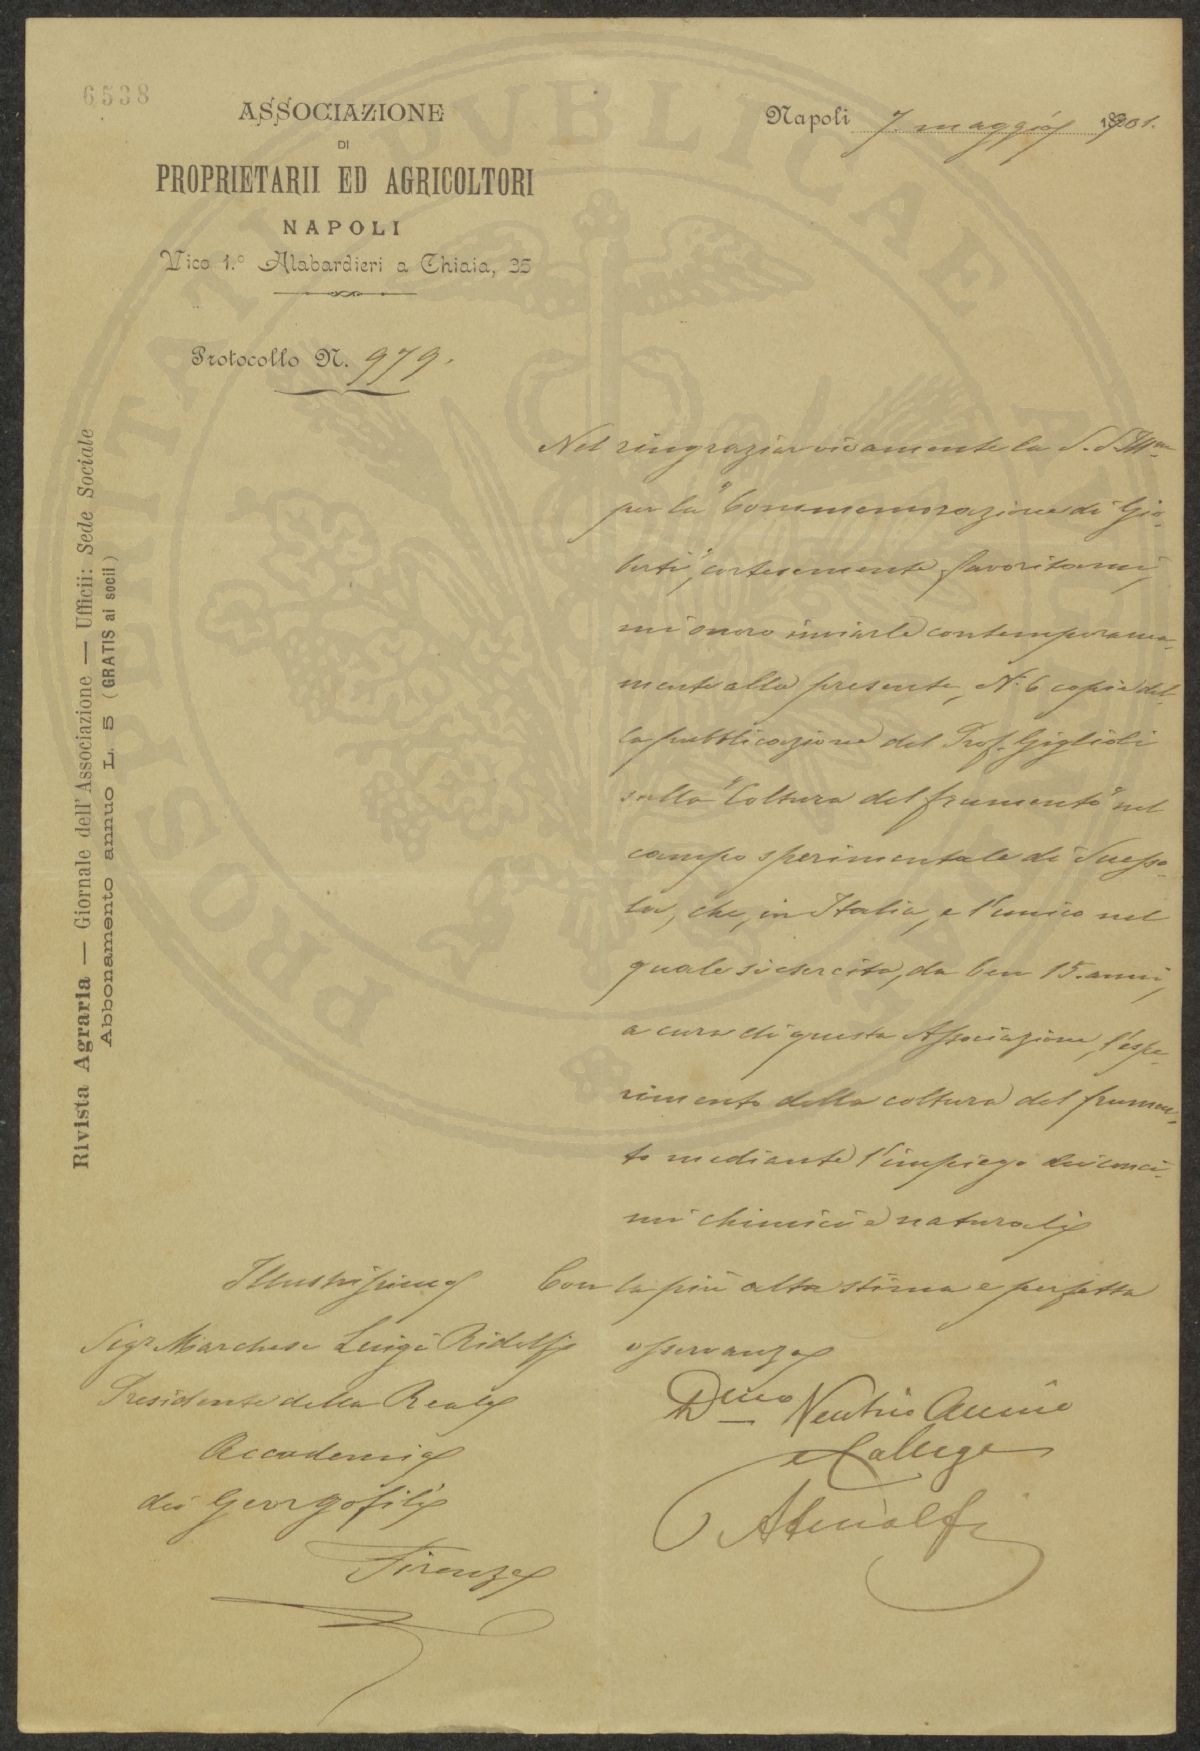 6538
ASSOCIAZIONE
DI
PROPRIETARII ED AGRICOLTORI
NAPOLI
Vico 1.º Alabardieri a Chiaia, 35
Napoli 7. maggio 1901.
Protocollo N. 979.
Rivista Agraria — Giornale dell'Associazione — Ufficii: Sede Sociale
Abbonamento annuo L. 5 (GRATIS ai socii)
PROSPERITATI PUBLICAE AUGENDAE
Nel ringraziar vivamente la S. S. Ill.ma
per la "Commemorazione di Gio-
berti", cortesemente favoritami,
mi onoro inviarle contemporanea-
mente alla presente, N. 6 copie del-
la pubblicazione del Prof. Giglioli
sulla "Coltura del frumento" nel
campo sperimentale di Suesso-
la, che, in Italia, e l'unico nel
quale si esercita, da ben 15. anni,
a cura di questa Associazione, l'espe-
rimento della coltura del frumen-
to mediante l'impiego dei conci-
mi chimici e naturali
Con la più alta stima e perfetta
osservanza
D.mo
Collega
Illustrissimo
Sig.r Marchese Luigi Ridolfi
Presidente della Reale
Accademia
dei Georgofili
Firenze